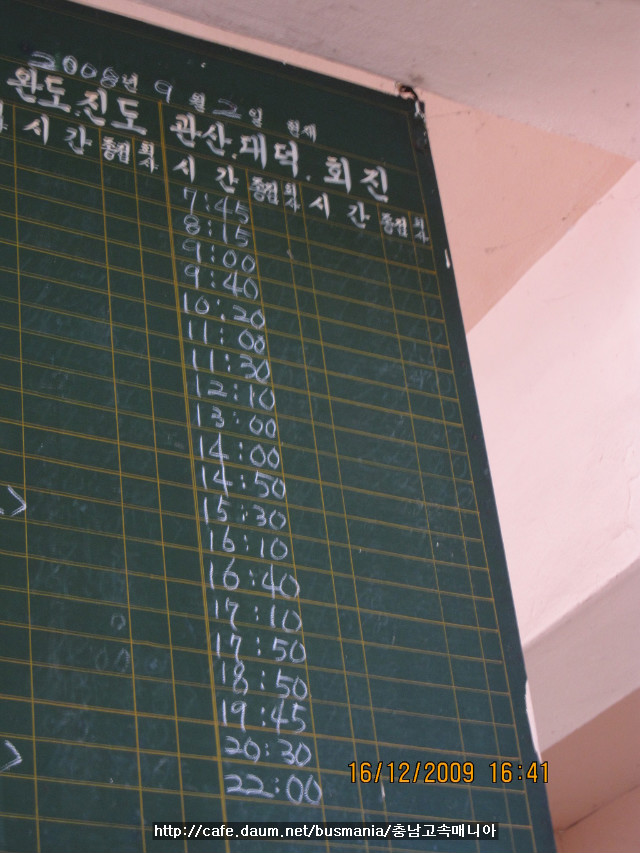 2008년 9월 2일 현재
완도.진도 관산.대덕.회진
시간 종점 회사 시간 종점 회사 시간 종점 회사
7:45
8:15
9:00
9:40
10:20
11:00
11:30
12:10
13:00
14:00
14:50
15:30
16:10
16:40
17:10
17:50
18:50
19:45
20:30
22:00
16/12/2009 16:41
http://cafe.daum.net/busmania/충남고속매니아